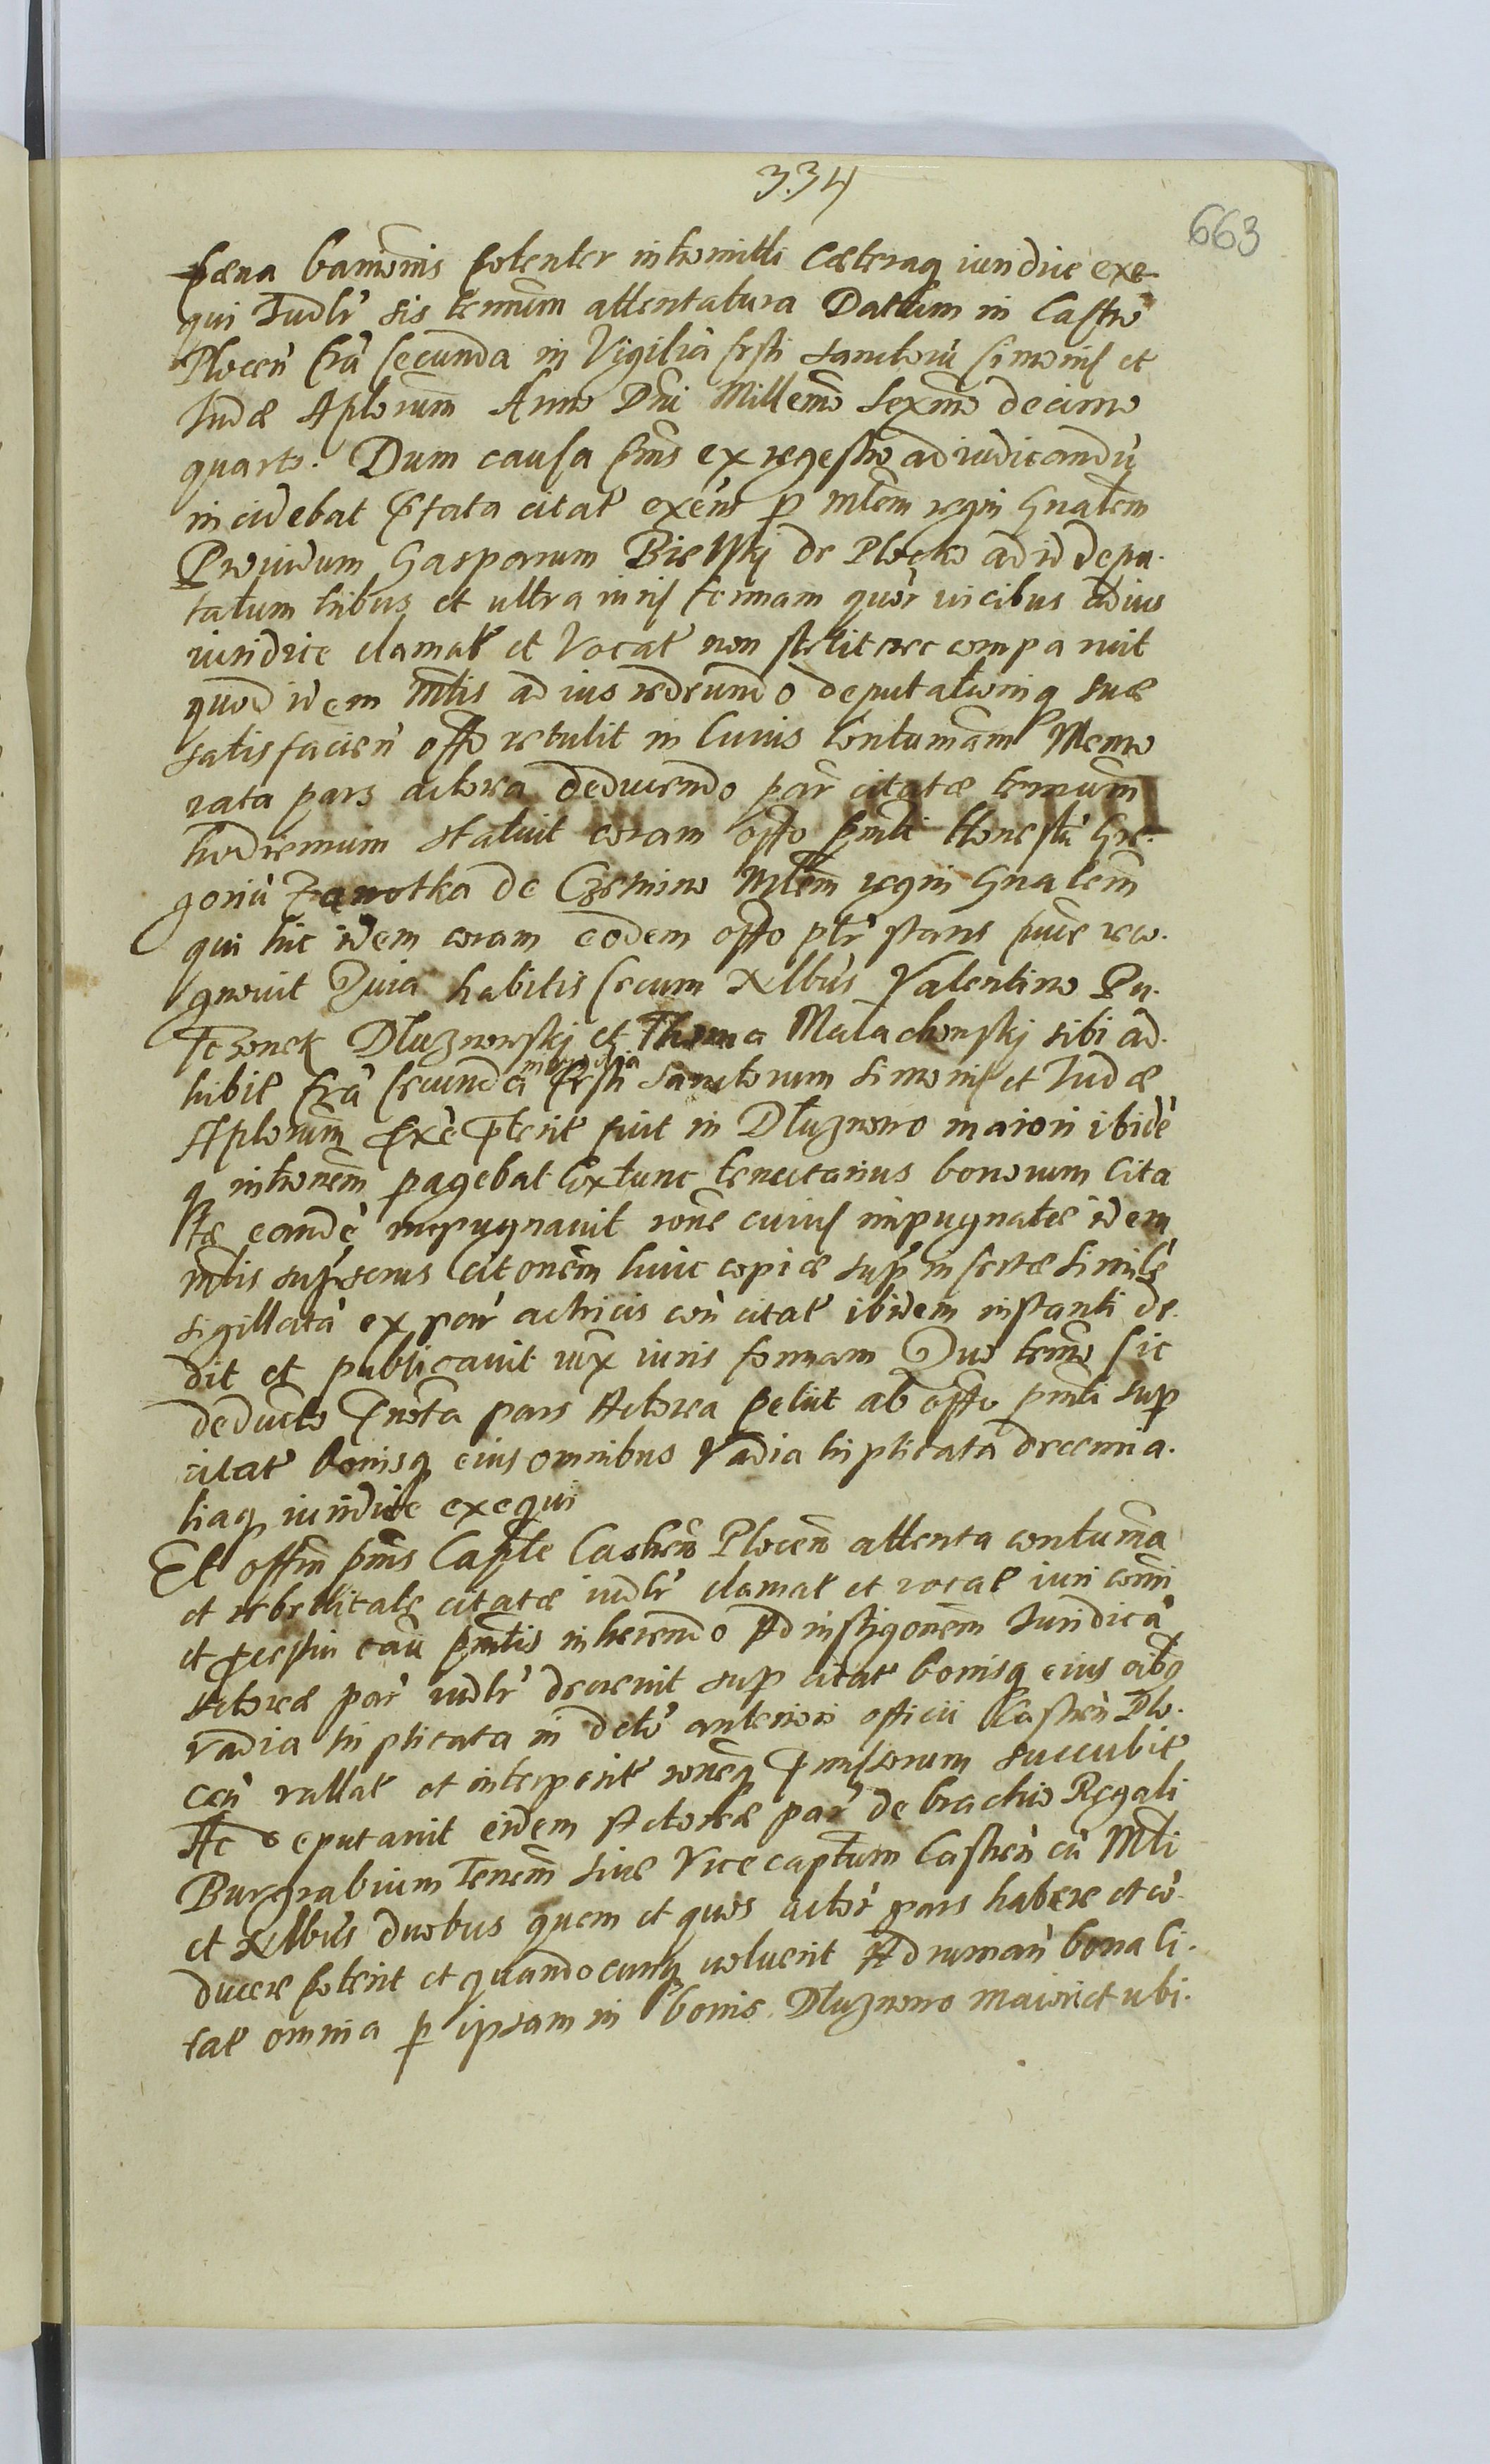 334
663
paena bannonis potenter intromitti caeteraq iuridice exe-
qui Iudlr sis termum attentatura Dattum in Castro
Plocen fra secunda in Vigilia festi sanctorũ Simonis et
Iudæ Aplorum Anno Dni Millemo sexmo decimo
quarto. Dum causa pns ex regestro ad iudicandũ
incidebat Pfata citat exens p mlem regni Gnalem
Prouidum Gasparum Bielski de Plocko ad id depu-
tatum tribus et ultra iuris formam quor uicibus ad ius
iuridice clamat et Vocat non stetit nec comparuit
quod idem Mtis ad ius redeundo deputationiq suæ
satisfacien offo retulit in cuius contumam Memo
rata pars actorea deducendo par citatæ termum
hodiernum statuit coram offo pnti Honestũ Gre-
goriũ Zawotka de Czernino Mlem regni Gnalem
qui hic idem coram eodem offo ptr stans piure reco-
gnouit Quia habitis secum Nlbus Valentino Pu-
Dluznowskj et Thoma Malachowskj sibi ad-
hibit fra secunda in uigilia festi sanctorum Simonis et Iudæ
Aplorum fuit in Dluzniewo maiori ibidẽ
q intronem pagebat Extunc tenutarius bonorum Cita
tæ eandẽ impugnauit rone cuius impugnatæ idem
mtis citonem huic copiæ sup insertæ similẽ
sigillatã ex par actricis con citat ibidem instanti de-
dit et publicauit iux iuris formam Quo termo sic
deducto Pnota pars Actorea petiit ab offo pnti sup
citat bonisq eius omnibus Vadia triplicata decerni a-
liaq iuridice exequi
Et offm pns Caple Castren Plocen attenta contuma
et rebellitate citatæ iudlr clamat et vocat iuri comi
et pcessui cau pntis inherendo Ad instigonem Iuridicã
Actoreæ par iudlr decreuit sup citat bonisq eius oibq
vadia triplicata in deto anteriori officii Castren Plo-
cen vallat et interposit roneq Pmissorum succubit
Ac deputauit eidem Actoreæ par de brachio Regali
Burgrabium Tenem siue Vicecaptum Castren cũ Mti
et Nlbus duobus quem et quos actor pars habere et cõ-
ducere poterit et quandocunq uoluerit Ad ruman bona ci-
tat omnia p ipsam in bonis Dluzniewo maiori et ubi-